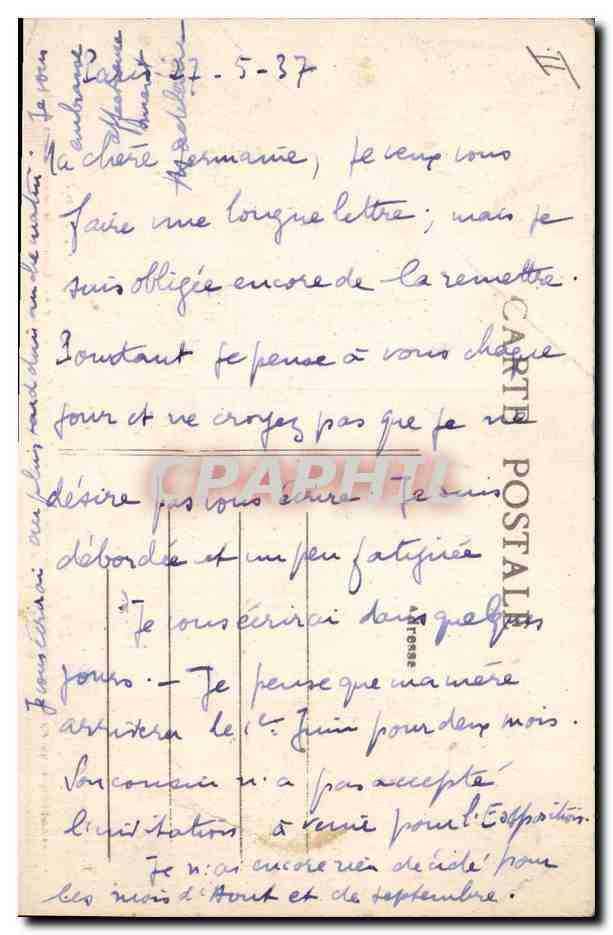 II
Paris 27-5-37
Ma chère Germaine, je veux vous
faire une longue lettre; mais je
suis obligée encore de la remettre.
Pourtant je pense à vous chaque
jour et ne croyez pas que je ne
désire pas vous écrire Je suis
débordée et un peu fatiguée
Je vous écrirai dans quelques
jours. - Je pense que ma mère
arrivera le 1er Juin pour deux mois.
Son cousin n'a pas accepté
l'invitation à venir pour l'Exposition.
Je n'ai encore rien décidé pour
les mois d'Aout et de septembre.
Je vous écrirai au plus tard dimanche matin. Je vous
embrasse
affectueuse
ment
Madeleine
CARTE POSTALE
Adresse
CPAPHIL